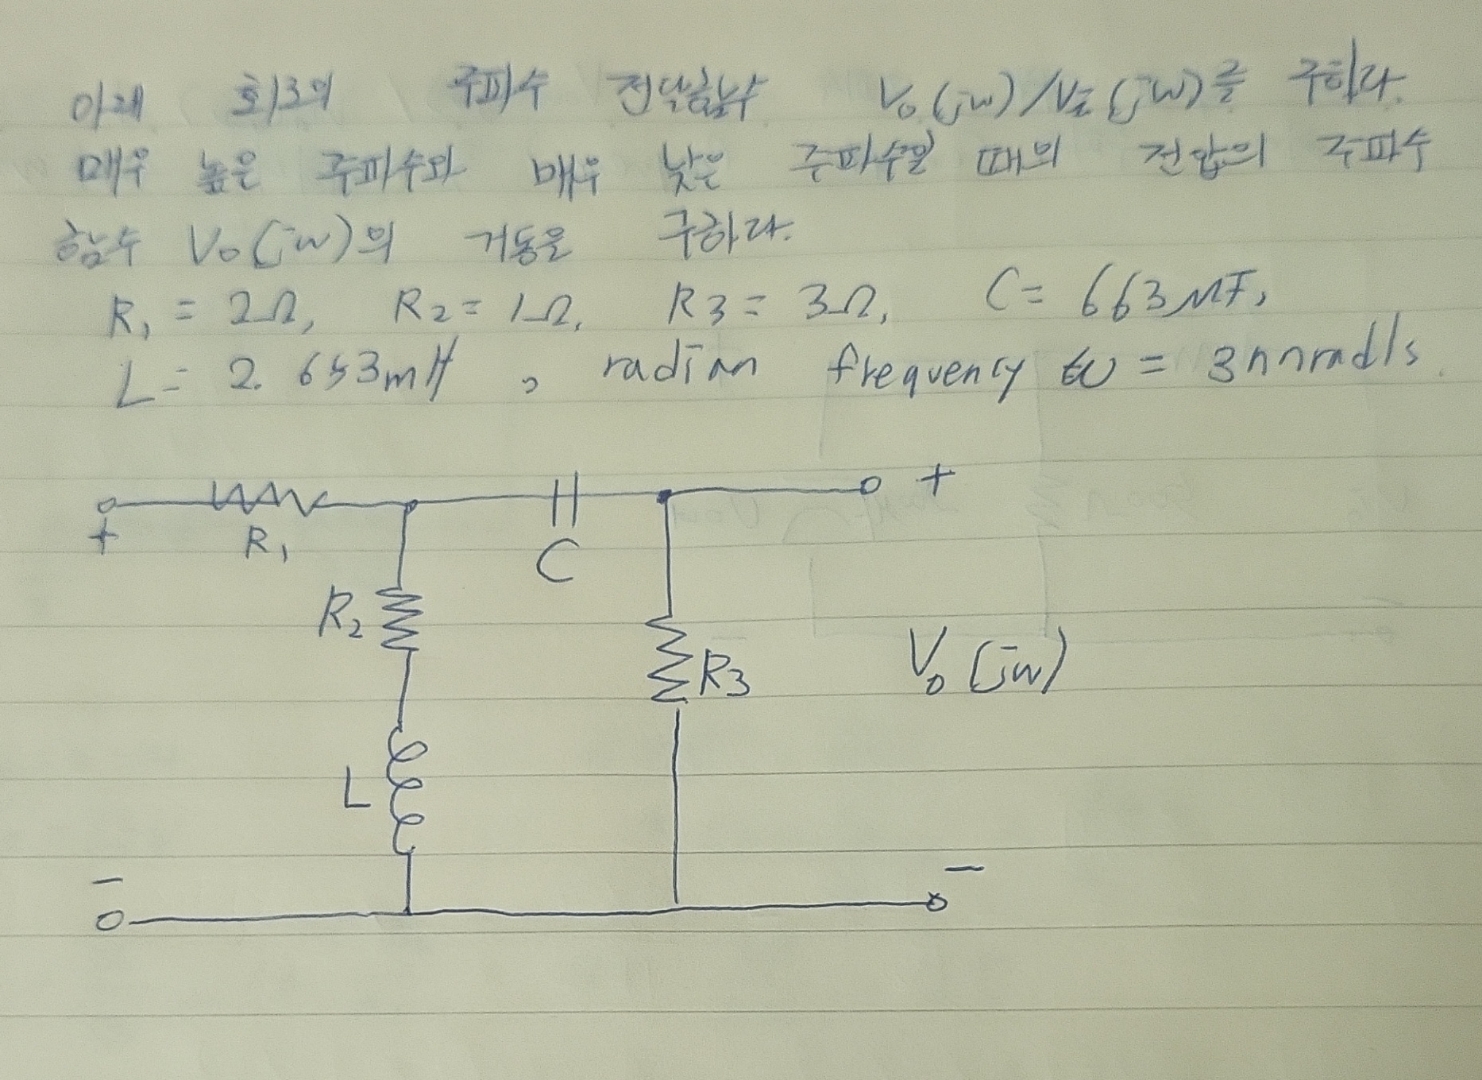 아래 회로의 주파수 전달함수 Vo(jw)/Vi(jw)를 구하라.
매우 높은 주파수와 매우 낮은 주파수일 때의 전압의 주파수
함수 Vo(jw)의 거동을 구하라.
R₁ = 2Ω, R₂ = 1Ω, R3 = 3Ω, C = 663MF,
L = 2.653mH, radian frequency ω = 3nnrad/s
+ R₁ C +
R₂
R3 Vo(jw)
L
− −